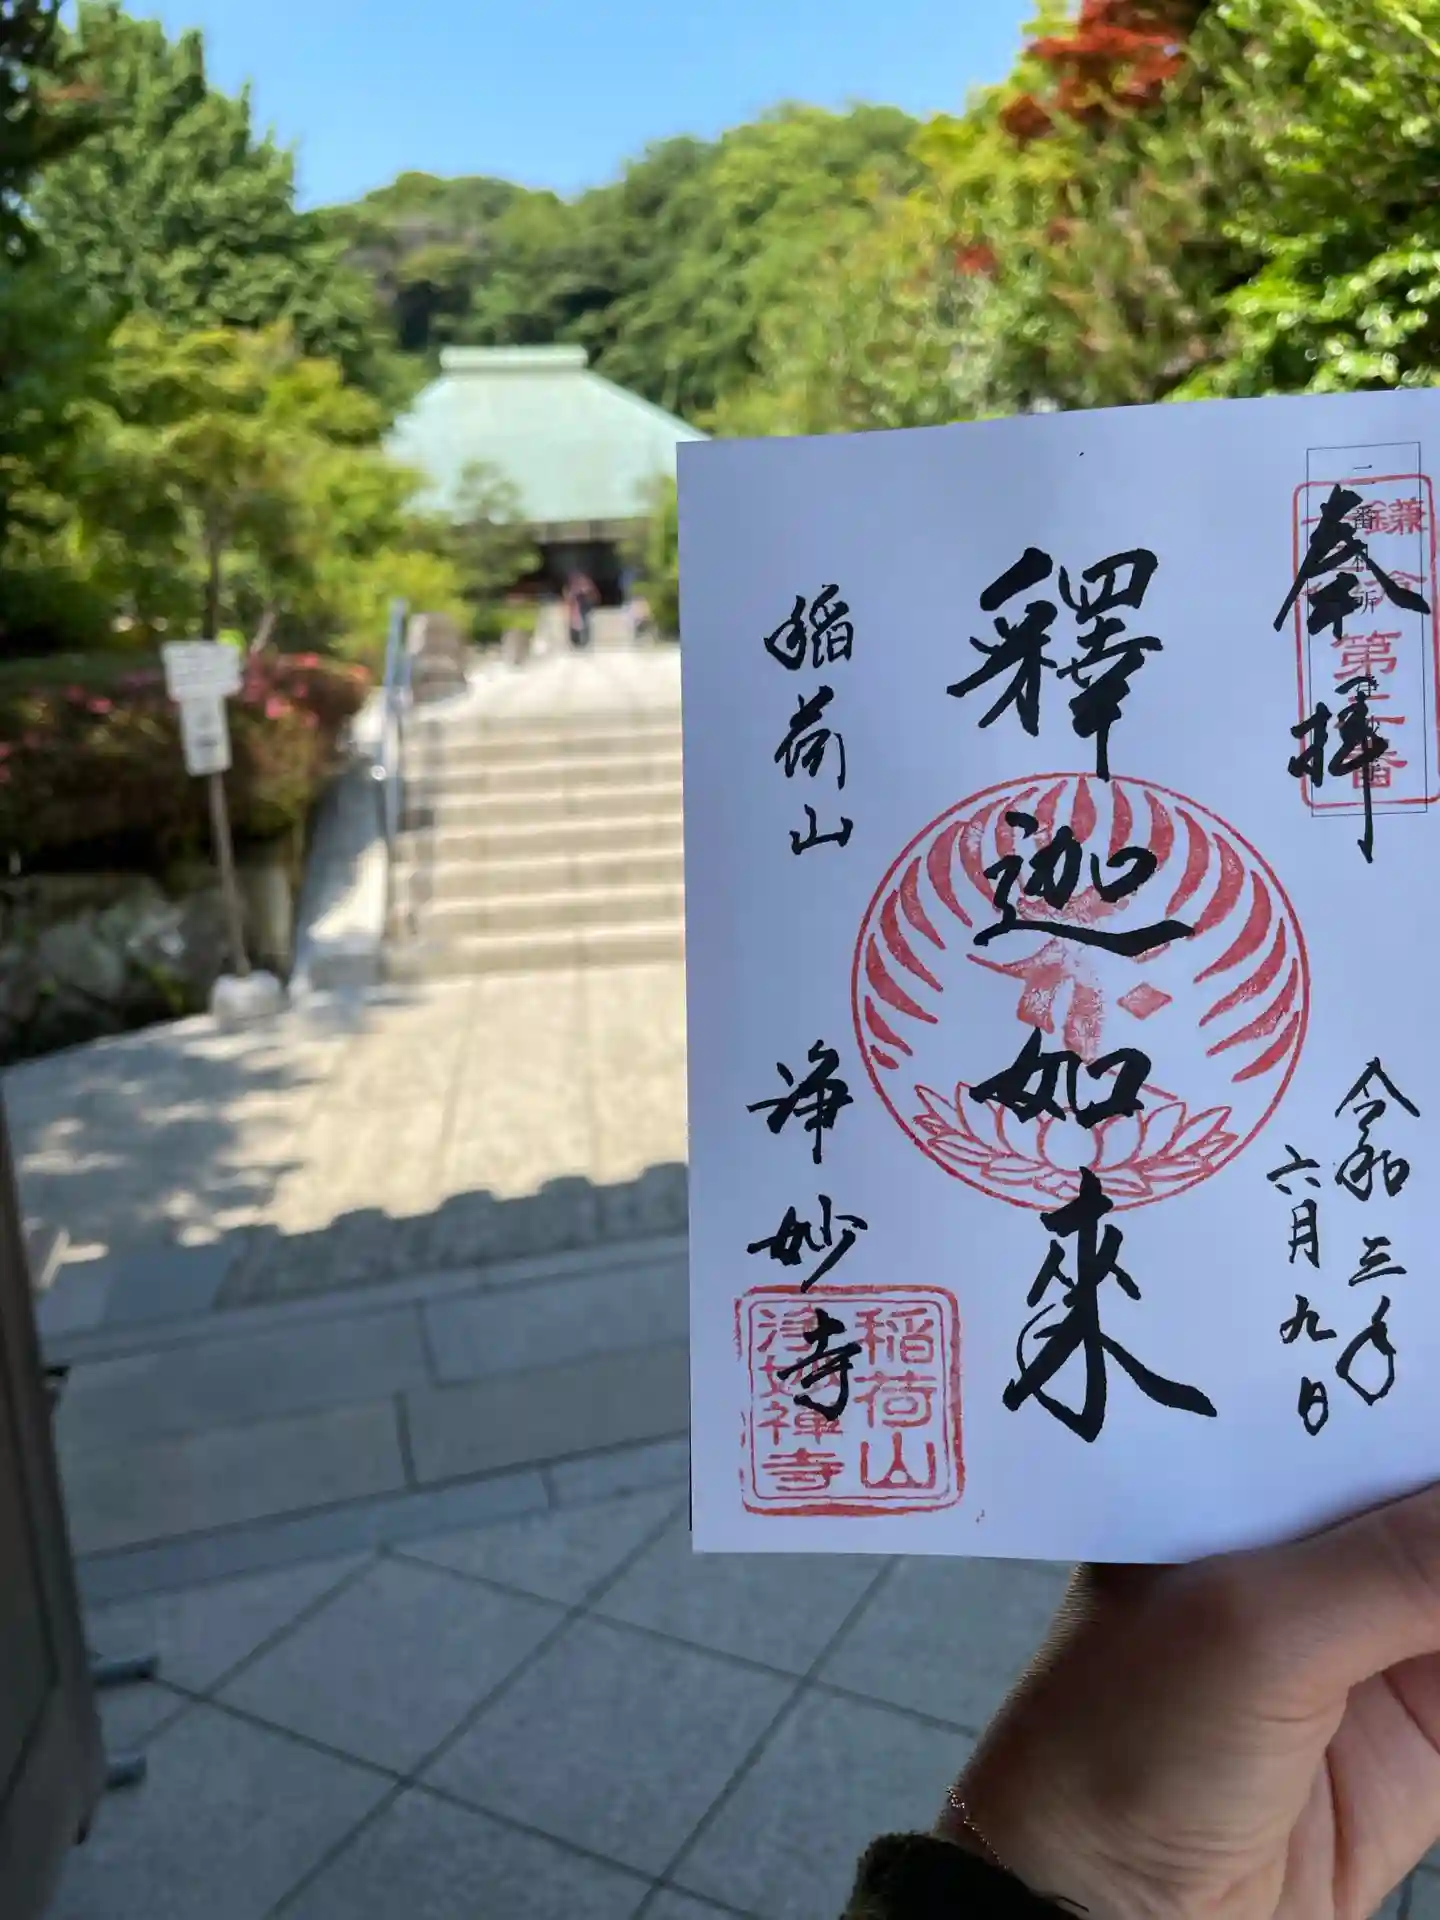 奉拝
令和三年
六月九日
釋迦如來
稲荷山
浄妙寺
稲荷山
浄妙禅寺